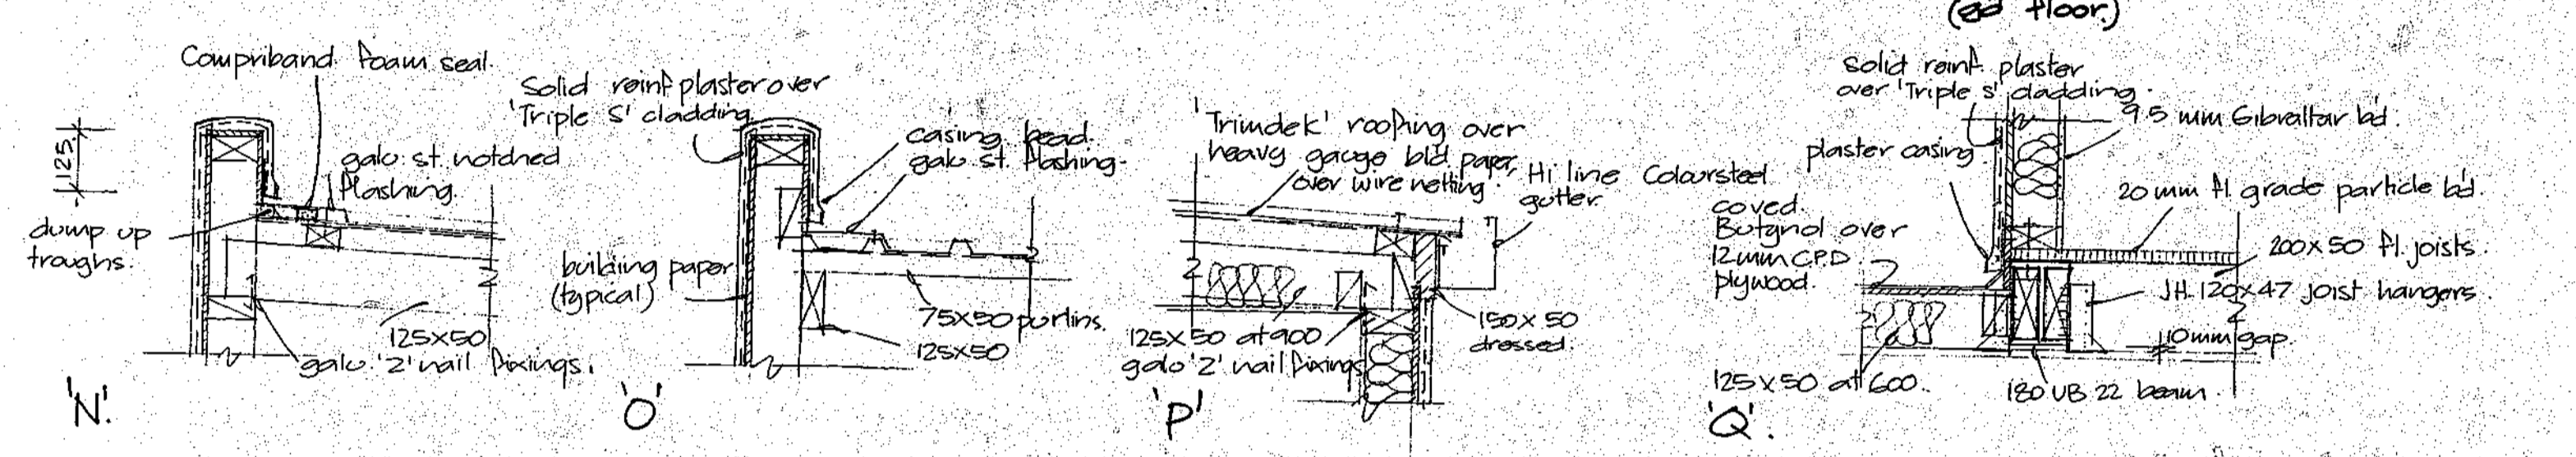 (gd floor.)
Compriband foam seal.
125.
galv st. notched
flashing.
dump up
troughs.
125x50
galv. 'Z' nail fixings.
'N'.
Solid reinf plaster over
'Triple S' cladding.
casing bead.
galv st. flashing.
building paper
(typical)
75x50 purlins.
125x50
'O'
'Trimdek' roofing over
heavy gauge bld paper,
over wire netting.
Hi line Coloursteel
gutter.
125x50 at 900
galv 'Z' nail fixings
150x50
dressed.
'P'
Solid reinf. plaster
over 'Triple S' cladding.
9.5 mm Gibraltar bd.
plaster casing
20mm fl. grade particle bd.
coved.
Butynol over
12mm C.P.D
plywood.
200x50 fl. joists.
JH 120x47 joist hangers.
10mm gap.
125x50 at 600.
180 UB 22 beam.
'Q'.